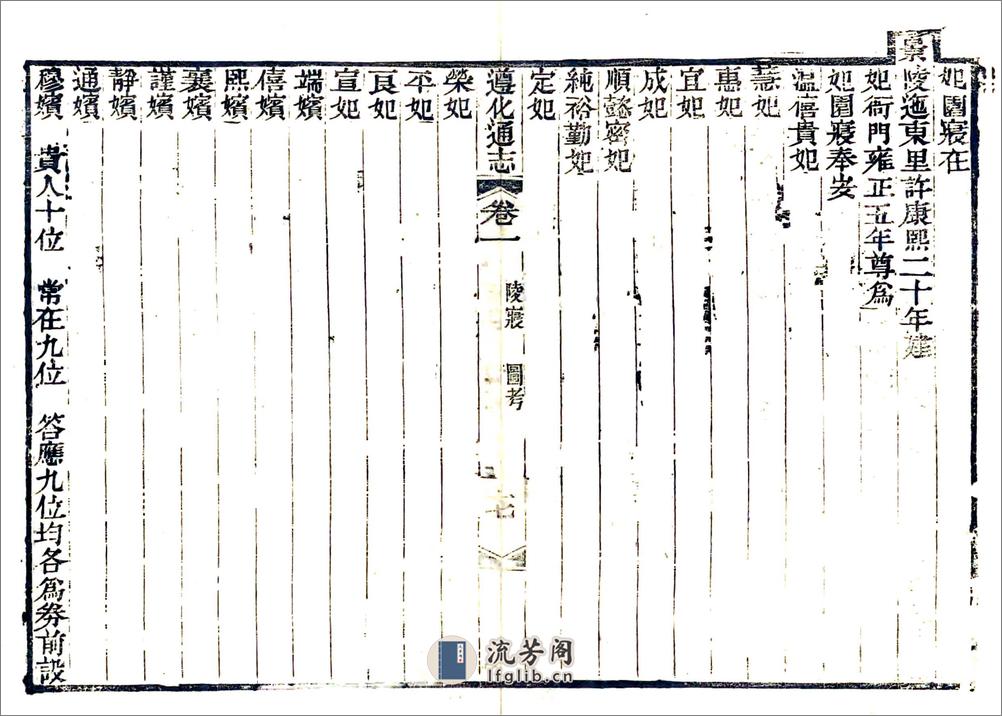 妃園寢在
景陵迤東里許康熙二十年建
妃衙門雍正五年尊爲
妃園寢奉安
溫僖貴妃
慧妃
惠妃
宜妃
成妃
順懿密妃
純裕勤妃
定妃
遵化通志 卷一 陵寢 圖考
榮妃
平妃
良妃
宣妃
端嬪
僖嬪
熙嬪
襄嬪
謹嬪
靜嬪
通嬪
穆嬪 貴人十位 常在九位 答應九位均各爲券前設
流芳阁
lfglib.cn